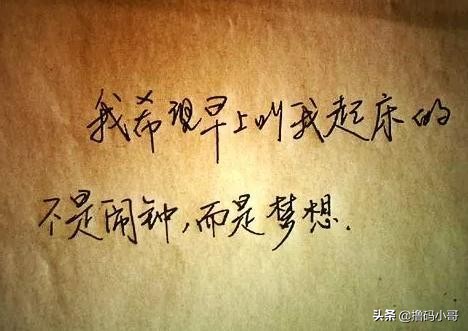 我希望早上叫我起床的
不是闹钟,而是梦想.
头条 @撸码小哥